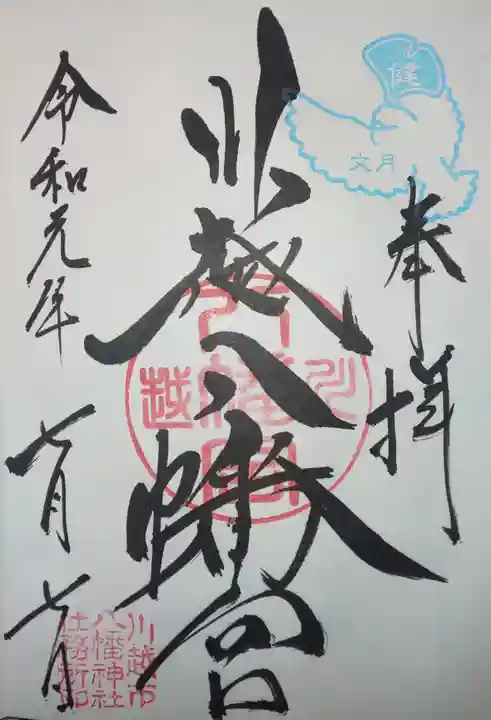 奉拝
健
文月
川越八幡宮
川越
八幡宮
令和元年
七月七日
川越市
八幡神社
社務所印